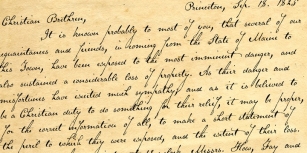 Princeton, Sep. 18. 1825
Christian Brethren,
It is known probably to most of you that several of our
acquaintances and friends, in coming from the State of Maine to
this Town, have been exposed to the most imminent danger, and
also sustained a considerable loss of property. As their danger and
misfortunes have excited much sympathy, and as it is believed to
be a Christian duty to do something for their relief, it may be proper,
for the correct information of all, to make a short statement of
the peril to which they were exposed, and the extent of their loss.
Messrs. Gay and